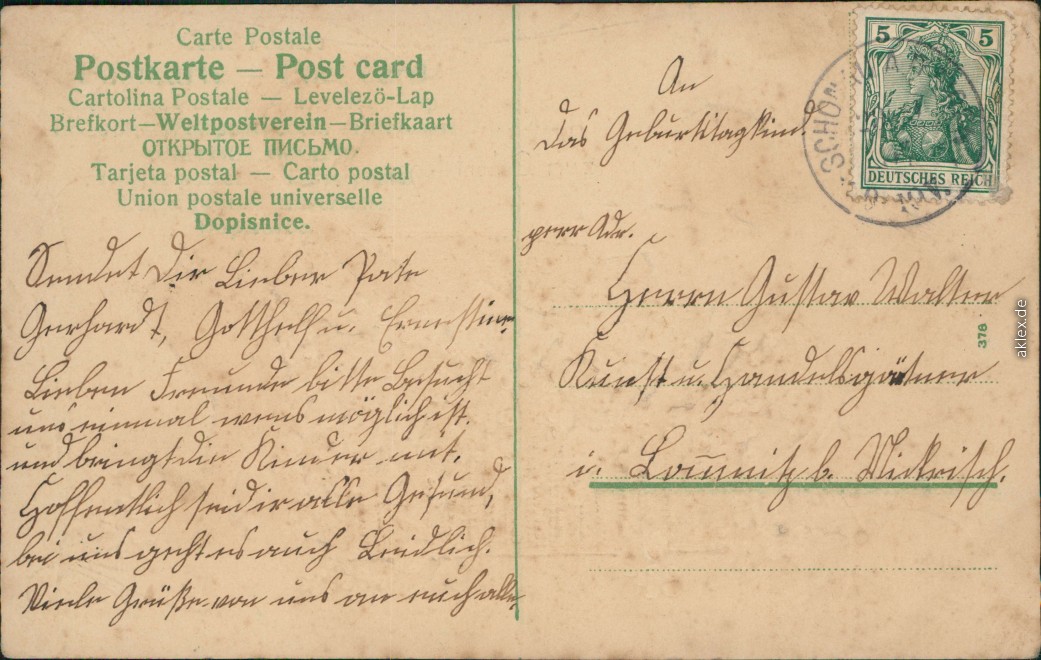 Carte Postale
Postkarte — Post card
Cartolina Postale — Levelező-Lap
Brefkort—Weltpostverein—Briefkaart
ОТКРЫТОЕ ПИСЬМО.
Tarjeta postal — Carto postal
Union postale universelle
Dopisnice.
Sendet Dir Lieber Pate
Gerhardt, Gotthelf u. Ernestine
Lieben Freunde bitte besucht
uns einmal wens möglich ist.
und bringt die Kinder mit.
Hoffentlich seid ir alle Gesund,
bei uns geht es auch Leidlich.
Viele Grüße von uns an euch alle.
An
das Geburtstagkind
perr Adr.
Herrn Gustav Walter
Kunst u. Handelsgärtner
i. b. Wickrisch.
5 5
DEUTSCHES REICH
SCHÖN
378
aklex.de